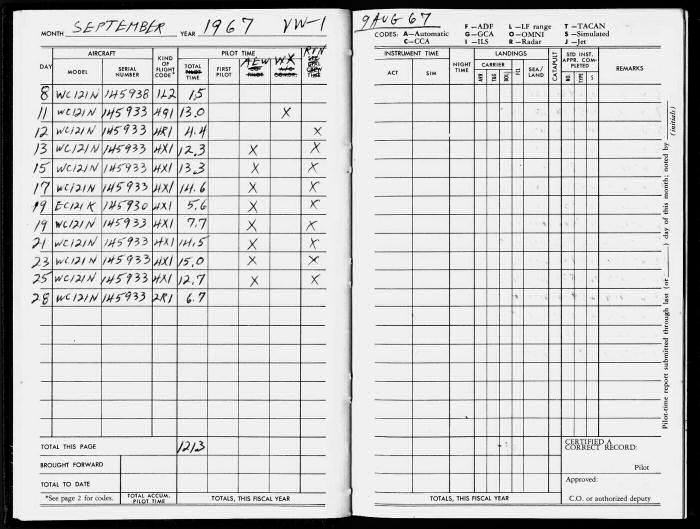 MONTH SEPTEMBER YEAR 1967 VW-1
AIRCRAFT PILOT TIME
DAY MODEL SERIAL NUMBER KIND OF FLIGHT CODE* TOTAL PILOT TIME FIRST PILOT AEW WX RTN
8 WC121N 145938 1L2 1.5
11 WC121N 145933 4Q1 13.0 X
12 WC121N 145933 4R1 4.4 X
13 WC121N 145933 4X1 12.3 X X
15 WC121N 145933 4X1 13.3 X X
17 WC121N 145933 4X1 14.6 X X
19 EC121K 145930 4X1 5.6 X X
19 WC121N 145933 4X1 7.7 X X
21 WC121N 145933 4X1 14.5 X X
23 WC121N 145933 4X1 15.0 X X
25 WC121N 145933 4X1 12.7 X X
28 WC121N 145933 2R1 6.7
TOTAL THIS PAGE 121.3
BROUGHT FORWARD
TOTAL TO DATE
*See page 2 for codes. TOTAL ACCUM. PILOT TIME TOTALS, THIS FISCAL YEAR
9 AUG 67
CODES: A—Automatic C—CCA F—ADF G—GCA I—ILS L—LF range O—OMNI R—Radar T—TACAN S—Simulated J—Jet
INSTRUMENT TIME LANDINGS
ACT SIM NIGHT TIME CARRIER ARR. T&G BOL. FCL SEA/LAND CATAPULT STD INST. APPR. COMPLETED NO. TYPE S REMARKS
Pilot-time report submitted through last (or ) day of this month; noted by (initials)
CERTIFIED A CORRECT RECORD:
Pilot
Approved:
TOTALS, THIS FISCAL YEAR C.O. or authorized deputy